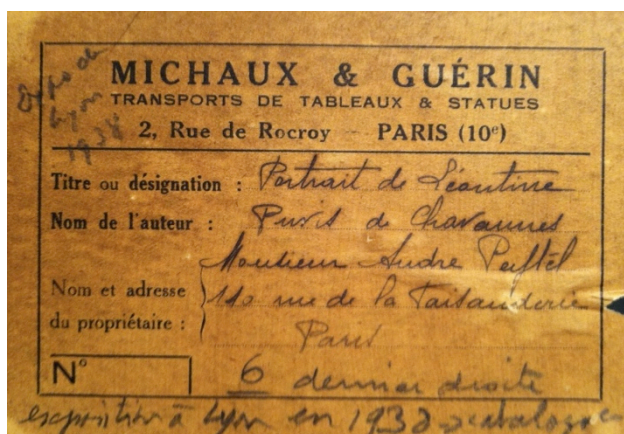 Expo de
Lyon
1938
MICHAUX & GUÉRIN
TRANSPORTS DE TABLEAUX & STATUES
2, Rue de Rocroy — PARIS (10e)
Titre ou désignation : Portrait de Léontine
Nom de l'auteur : Puvis de Chavannes
Nom et adresse du propriétaire :
Monsieur André
110 rue de la Faisanderie
Paris
N°
6 dernier droite
exposition à Lyon en 1938 catalogue